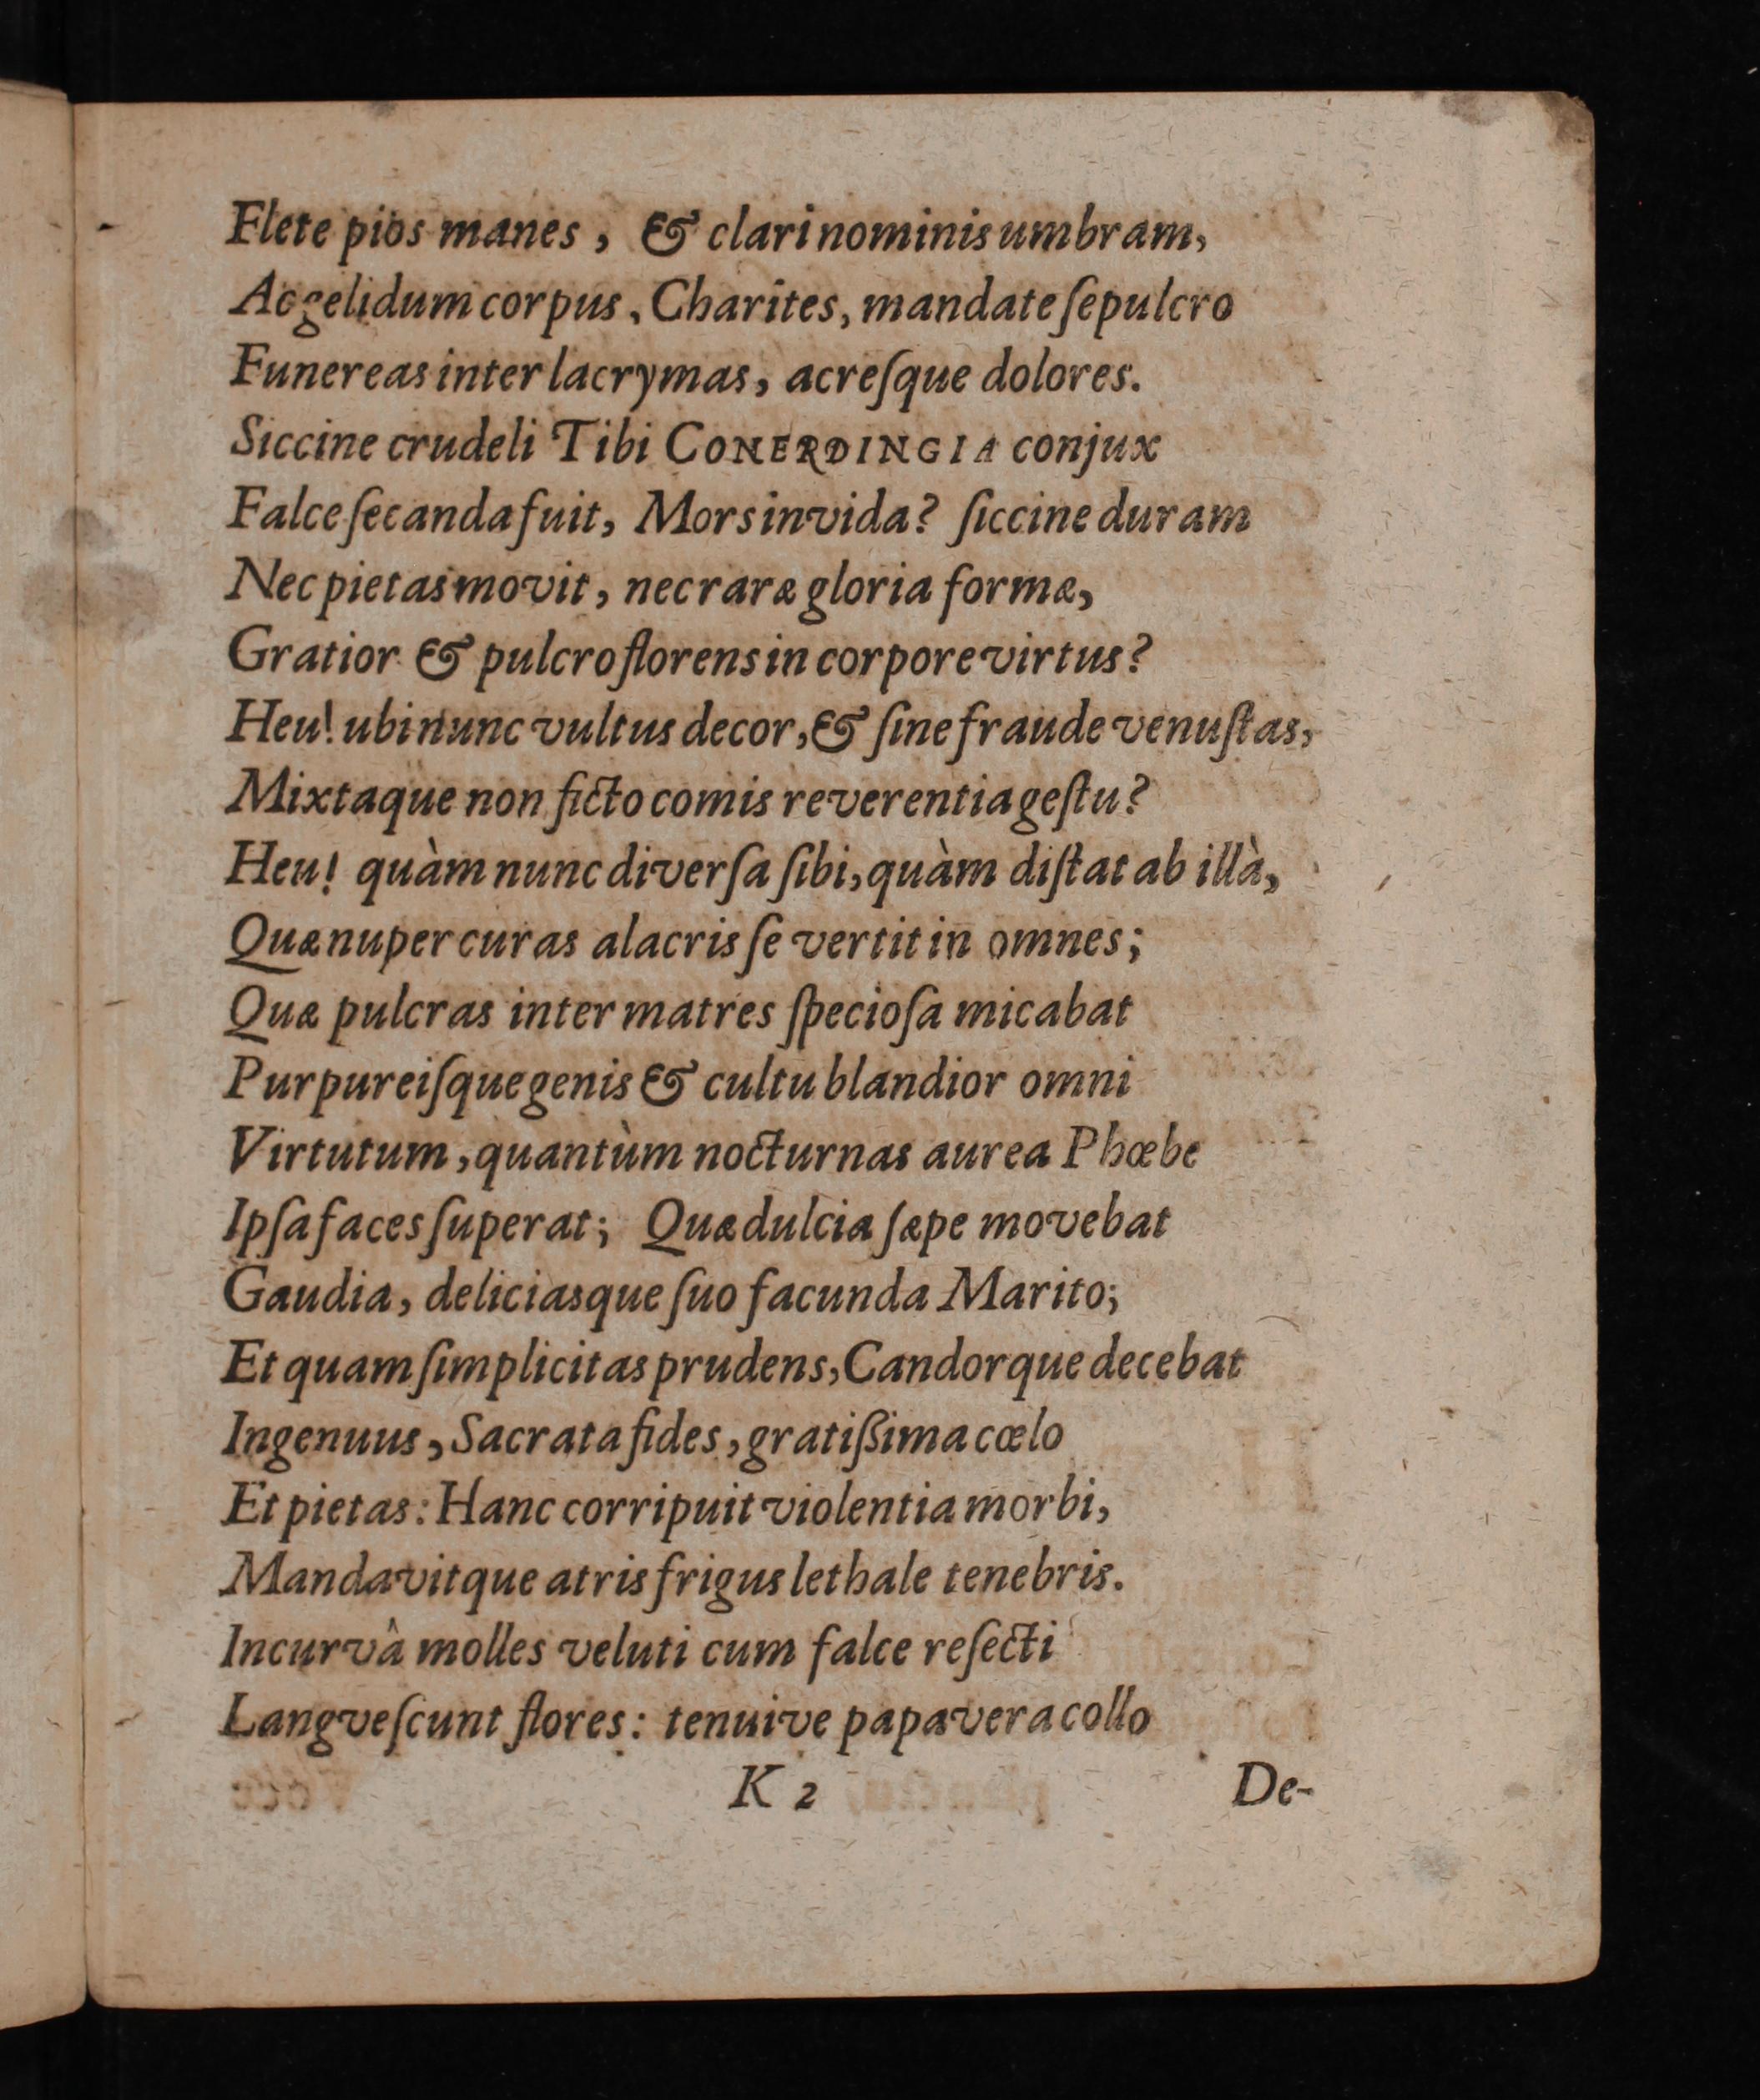 Flete pios manes, & clari nominis umbram,
Ac gelidum corpus, Charites, mandate ſepulcro
Funereas inter lacrymas, acreſque dolores.
Siccine crudeli Tibi CONERDINGIA conjux
Falce ſecanda fuit, Mors invida? ſiccine duram
Nec pietas movit, nec raræ gloria formæ,
Gratior & pulcro florens in corpore virtus?
Heu! ubi nunc vultus decor, & ſine fraude venuſtas,
Mixtaque non ficto comis reverentia geſtu?
Heu! quàm nunc diverſa ſibi, quàm diſtat ab illà,
Quæ nuper curas alacris ſe vertit in omnes;
Quæ pulcras inter matres ſpecioſa micabat
Purpureiſque genis & cultu blandior omni
Virtutum, quantùm nocturnas aurea Phœbe
Ipſa faces ſuperat; Quæ dulcia ſæpe movebat
Gaudia, deliciasque ſuo facunda Marito;
Et quam ſimplicitas prudens, Candorque decebat
Ingenuus, Sacrata fides, gratißima cœlo
Et pietas: Hanc corripuit violentia morbi,
Mandavitque atris frigus lethale tenebris.
Incurvà molles veluti cum falce reſecti
Langveſcunt flores: tenuive papavera collo
K 2 De-